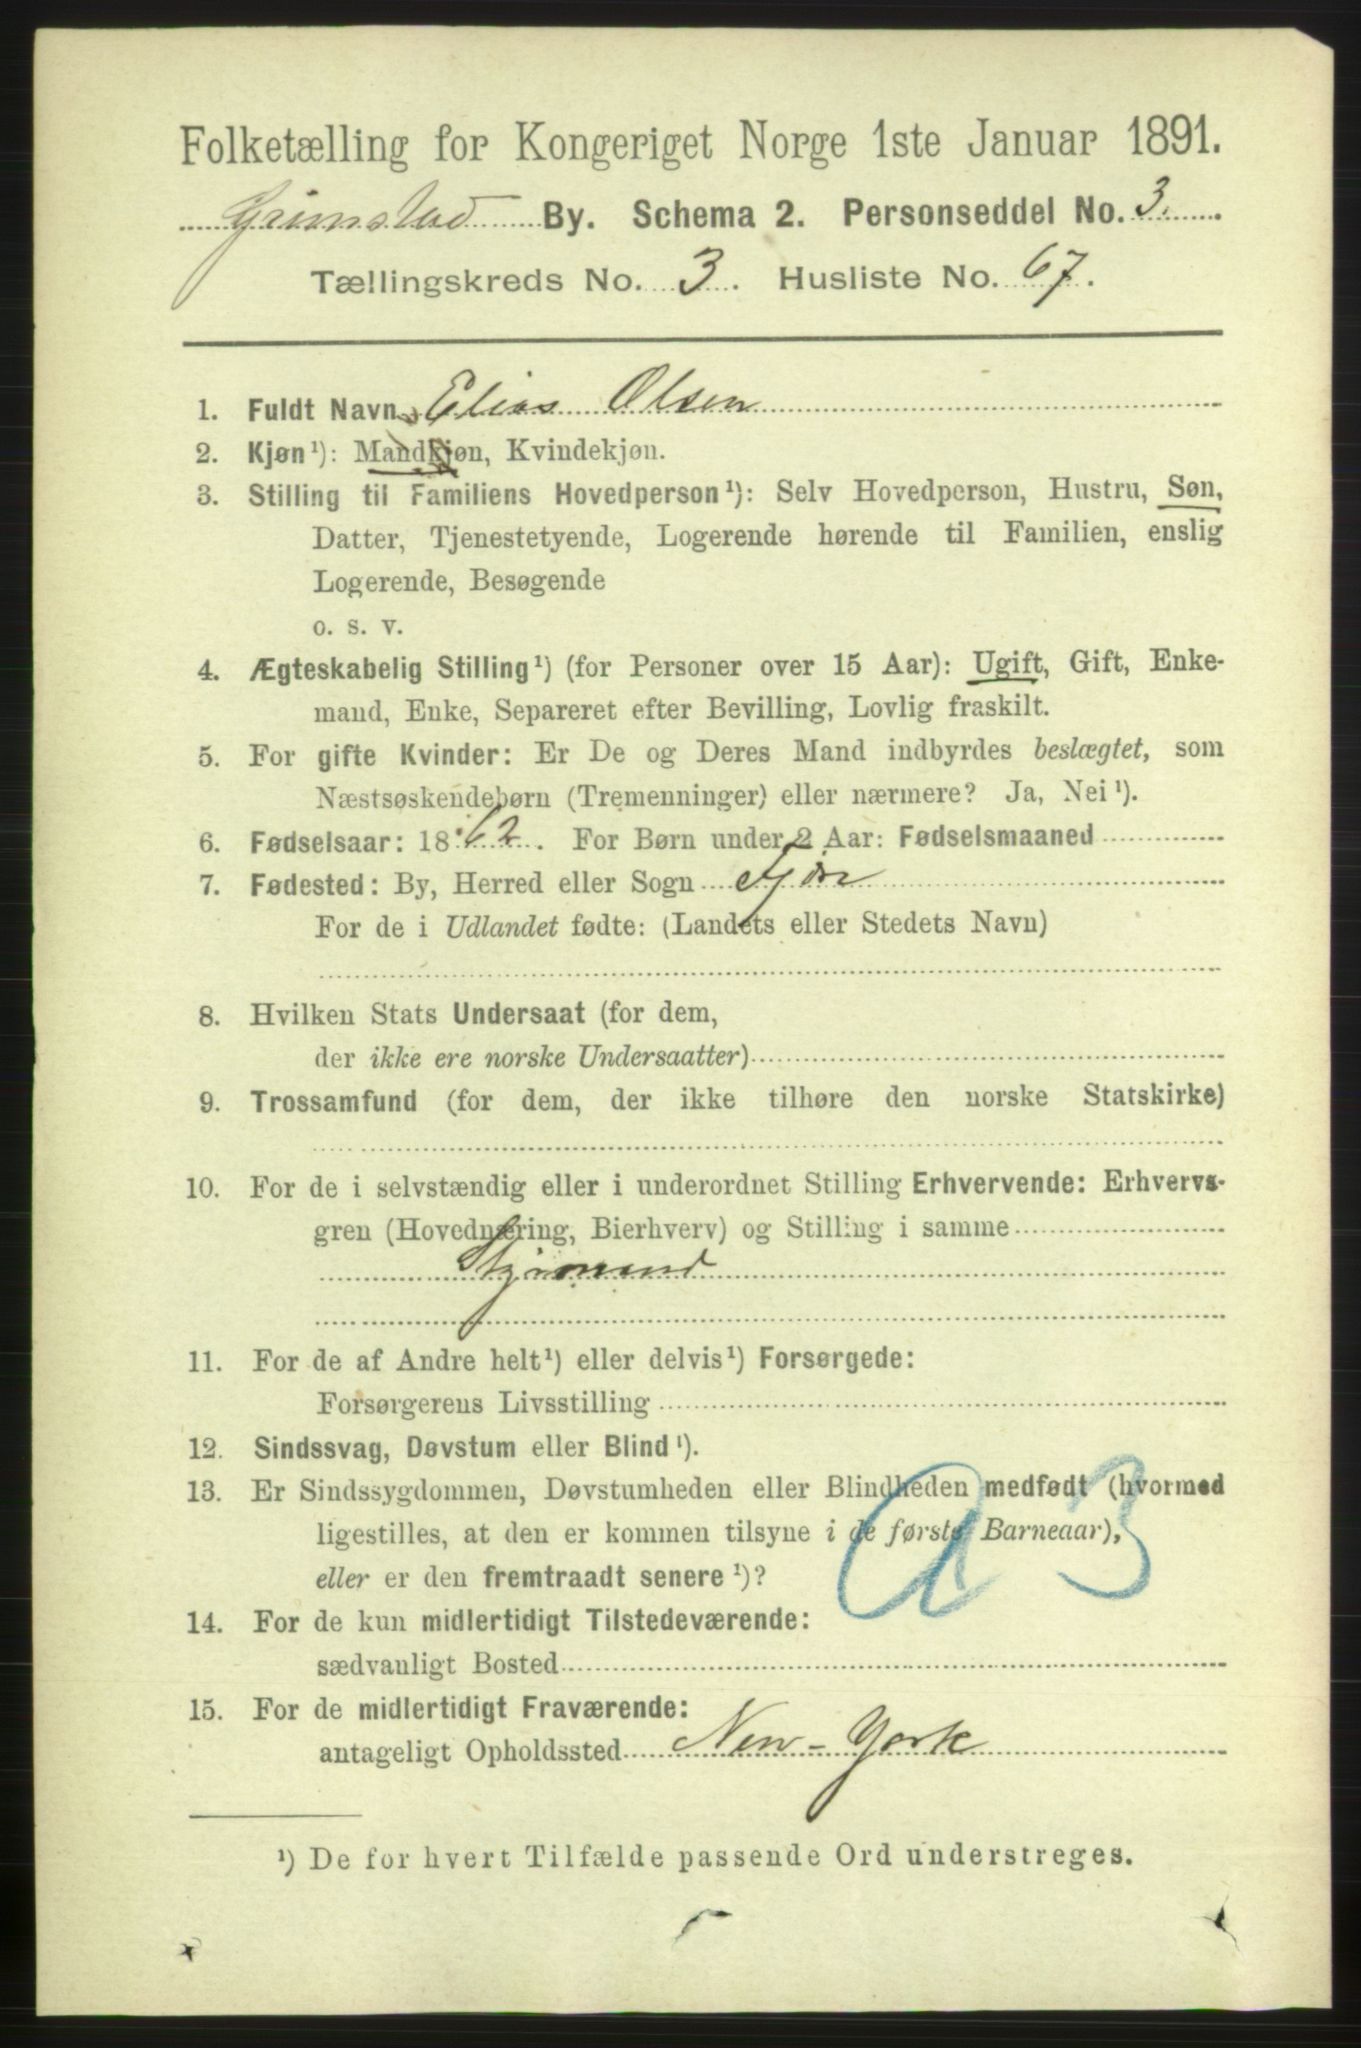 Folketælling for Kongeriget Norge 1ste Januar 1891.
Grimstad By. Schema 2. Personseddel No. 3.
Tællingskreds No. 3. Husliste No. 67.
1. Fuldt Navn Elias Olsen
2. Kjøn¹): Mandkjøn, Kvindekjøn.
3. Stilling til Familiens Hovedperson¹): Selv Hovedperson, Hustru, Søn,
Datter, Tjenestetyende, Logerende hørende til Familien, enslig
Logerende, Besøgende
o. s. v.
4. Ægteskabelig Stilling¹) (for Personer over 15 Aar): Ugift, Gift, Enke-
mand, Enke, Separeret efter Bevilling, Lovlig fraskilt.
5. For gifte Kvinder: Er De og Deres Mand indbyrdes beslægtet, som
Næstsøskendebørn (Tremenninger) eller nærmere? Ja, Nei¹).
6. Fødselsaar: 1862. For Børn under 2 Aar: Fødselsmaaned
7. Fødested: By, Herred eller Sogn Fjære
For de i Udlandet fødte: (Landets eller Stedets Navn)
8. Hvilken Stats Undersaat (for dem,
der ikke ere norske Undersaatter)
9. Trossamfund (for dem, der ikke tilhøre den norske Statskirke)
10. For de i selvstændig eller i underordnet Stilling Erhvervende: Erhvervs-
gren (Hovednæring, Bierhverv) og Stilling i samme
Styrmand
11. For de af Andre helt¹) eller delvis¹) Forsørgede:
Forsørgerens Livsstilling
12. Sindssvag, Døvstum eller Blind¹).
13. Er Sindssygdommen, Døvstumheden eller Blindheden medfødt (hvormed
ligestilles, at den er kommen tilsyne i de første Barneaar),
eller er den fremtraadt senere¹)?
14. For de kun midlertidigt Tilstedeværende:
sædvanligt Bosted
15. For de midlertidigt Fraværende:
antageligt Opholdssted New-York
¹) De for hvert Tilfælde passende Ord understreges.